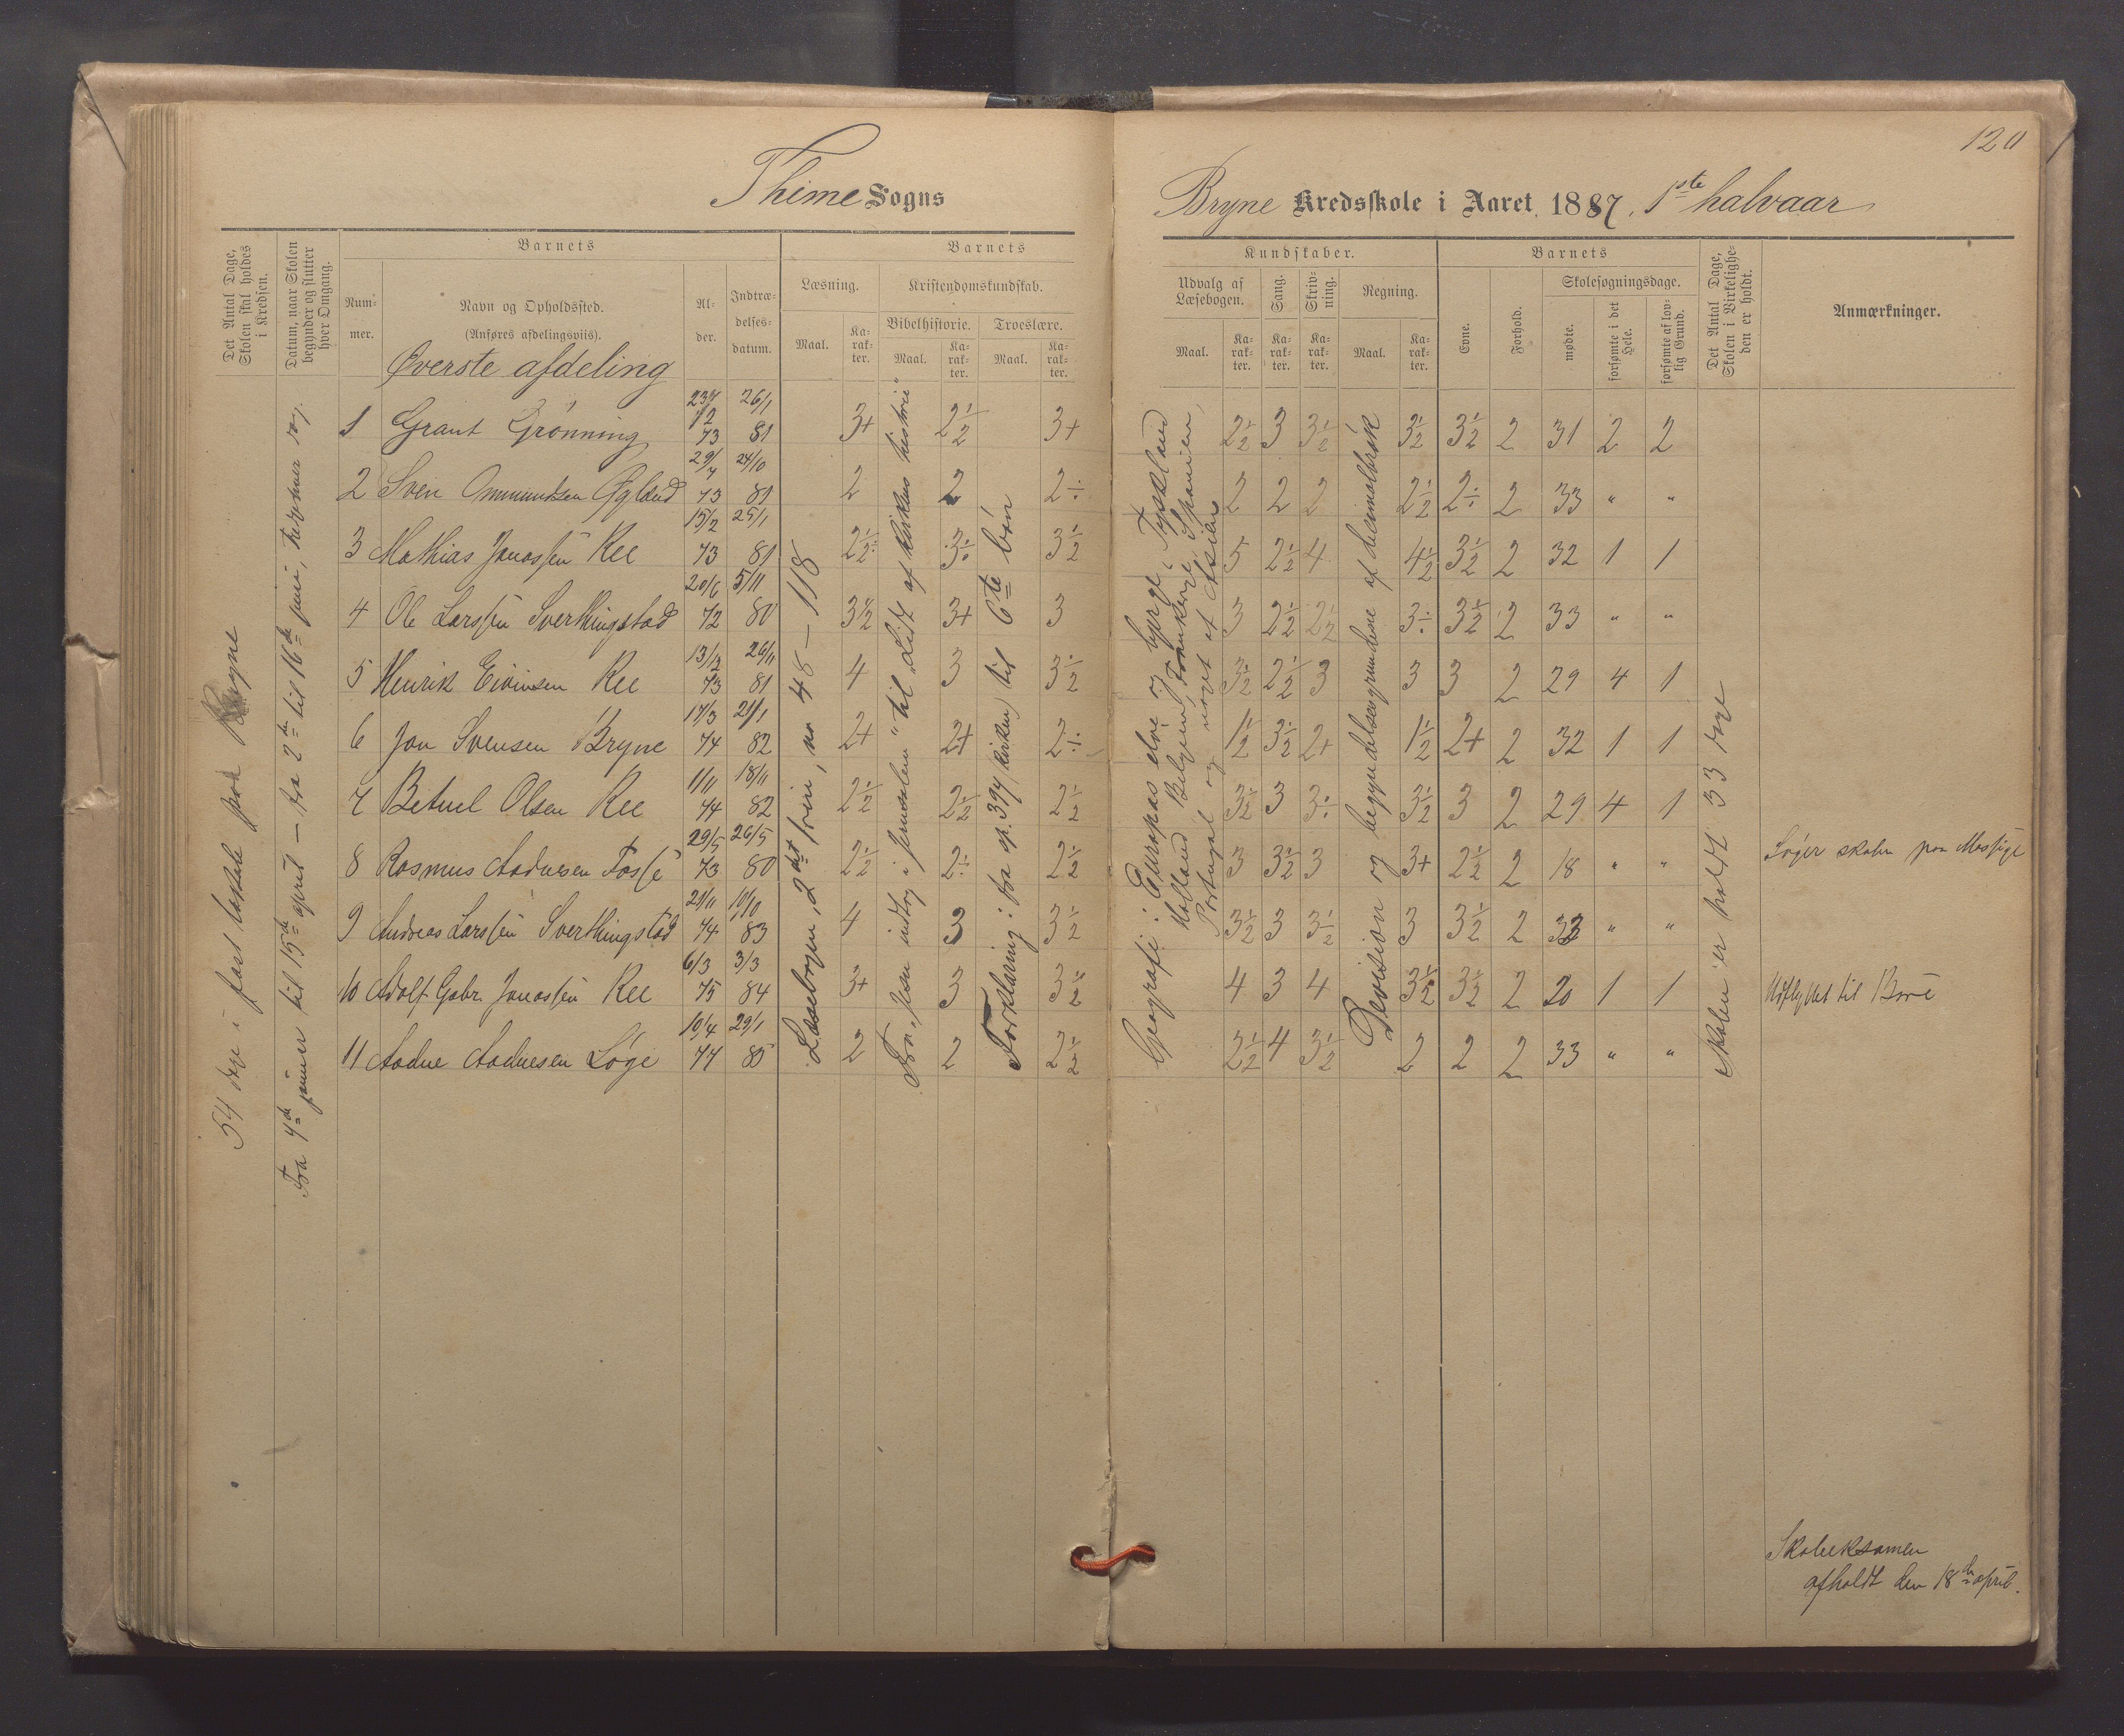 120
Thime Sogns
Bryne Kredsskole i Aaret 1887. 1ste halvaar
Det Antal Dage, Skolen skal holdes i Kredsen.
Datum, naar Skolen begynder og slutter hver Omgang.
Barnets
Num-mer.
Navn og Opholdssted.
(Anføres afdelingsviis).
Øverste afdeling
Al-der.
Indtræ-delses-datum.
Barnets
Læsning.
Maal.
Ka-rak-ter.
Kristendomskundskab.
Bibelhistorie.
Maal.
Ka-rak-ter.
Troeslære.
Maal.
Ka-rak-ter.
Kundskaber.
Udvalg af Læsebogen.
Maal.
Ka-rak-ter.
Sang.
Ka-rak-ter.
Skriv-ning.
Ka-rak-ter.
Regning.
Maal.
Ka-rak-ter.
Barnets
Evne.
Forhold.
Skolesøgningsdage.
mødte.
forsømte i det Hele.
forsømte af lov-lig Grund.
Det Antal Dage, Skolen i Virkelighe-den er holdt.
Anmærkninger.
54 dage i fast lokale paa Bryne
Fra 4de januar til 15de april — fra 2de til 16de juni,
Læsebogen, 2det trin, no 48 — 118
Fra "Jesu indtog i Jerusalem" til "Lidt af kirkens historie"
Forklaring: fra sp. 394 (kirken) til 6te bøn
Geografi: Europas elve og bjerge, Tyskland
Holland, Belgien, Frankerige, Spanien,
Portugal og noget af Asien
Devision og begyndelsesgrundene af desimalbrøk
Skolen er holdt 33 dage
1 Graut Grønning 23/12 73 26/1 81 3+ 2½ 3+ 2½ 3 3½ 3½ 3½ 2 31 2 2
2 Sven Ommundsen Øglænd 29/4 73 24/10 81 2 2 2÷ 2 2 2 2½ 2÷ 2 33 " "
3 Mathias Jonassen Ree 15/2 73 25/1 81 2½ 3÷ 3½ 5 2½ 4 4½ 3½ 2 32 1 1
4 Ole Larssen Sverthingstad 20/6 72 5/11 80 3½ 3+ 3 3 2½ 2½ 3÷ 3½ 2 33 " "
5 Henrik Eivinsen Ree 13/2 73 26/11 81 4 3 3½ 3½ 2½ 3 3 3 2 29 4 1
6 Jon Svensen Bryne 17/3 74 21/1 82 2+ 2+ 2÷ 1½ 3½ 2+ 1½ 2+ 2 32 1 1
7 Betuel Olsen Ree 1/11 74 18/11 82 2½ 2½ 2½ 3½ 3 3÷ 3½ 3 2 29 4 1
8 Rasmus Aadnesen Fosse 29/5 73 26/5 80 2½ 2÷ 2½ 3 3½ 3 3+ 2½ 2 18 " " Søger skolen paa Mossige
9 Andreas Larssen Sverthingstad 21/11 74 10/10 83 4 3 3½ 3½ 3 3½ 3 3½ 2 33 " "
10 Adolf Gabr. Jonassen Ree 6/3 75 3/3 84 3+ 3 3½ 4 3 4 3½ 3½ 2 20 1 1 Udflyttet til Bore
11 Aadne Aadnesen Løge 10/4 77 29/1 85 2 2 2½ 2½ 4 3½ 2 2 2 33 " "
Skoleeksamen
afholdt den 18de april.